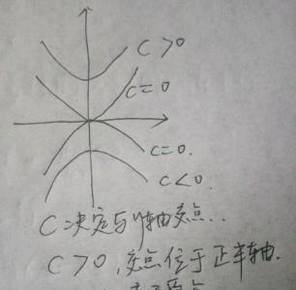 C>0
C=0
C=0.
C<0.
C决定与y轴交点..
C>0,交点位于正半轴.